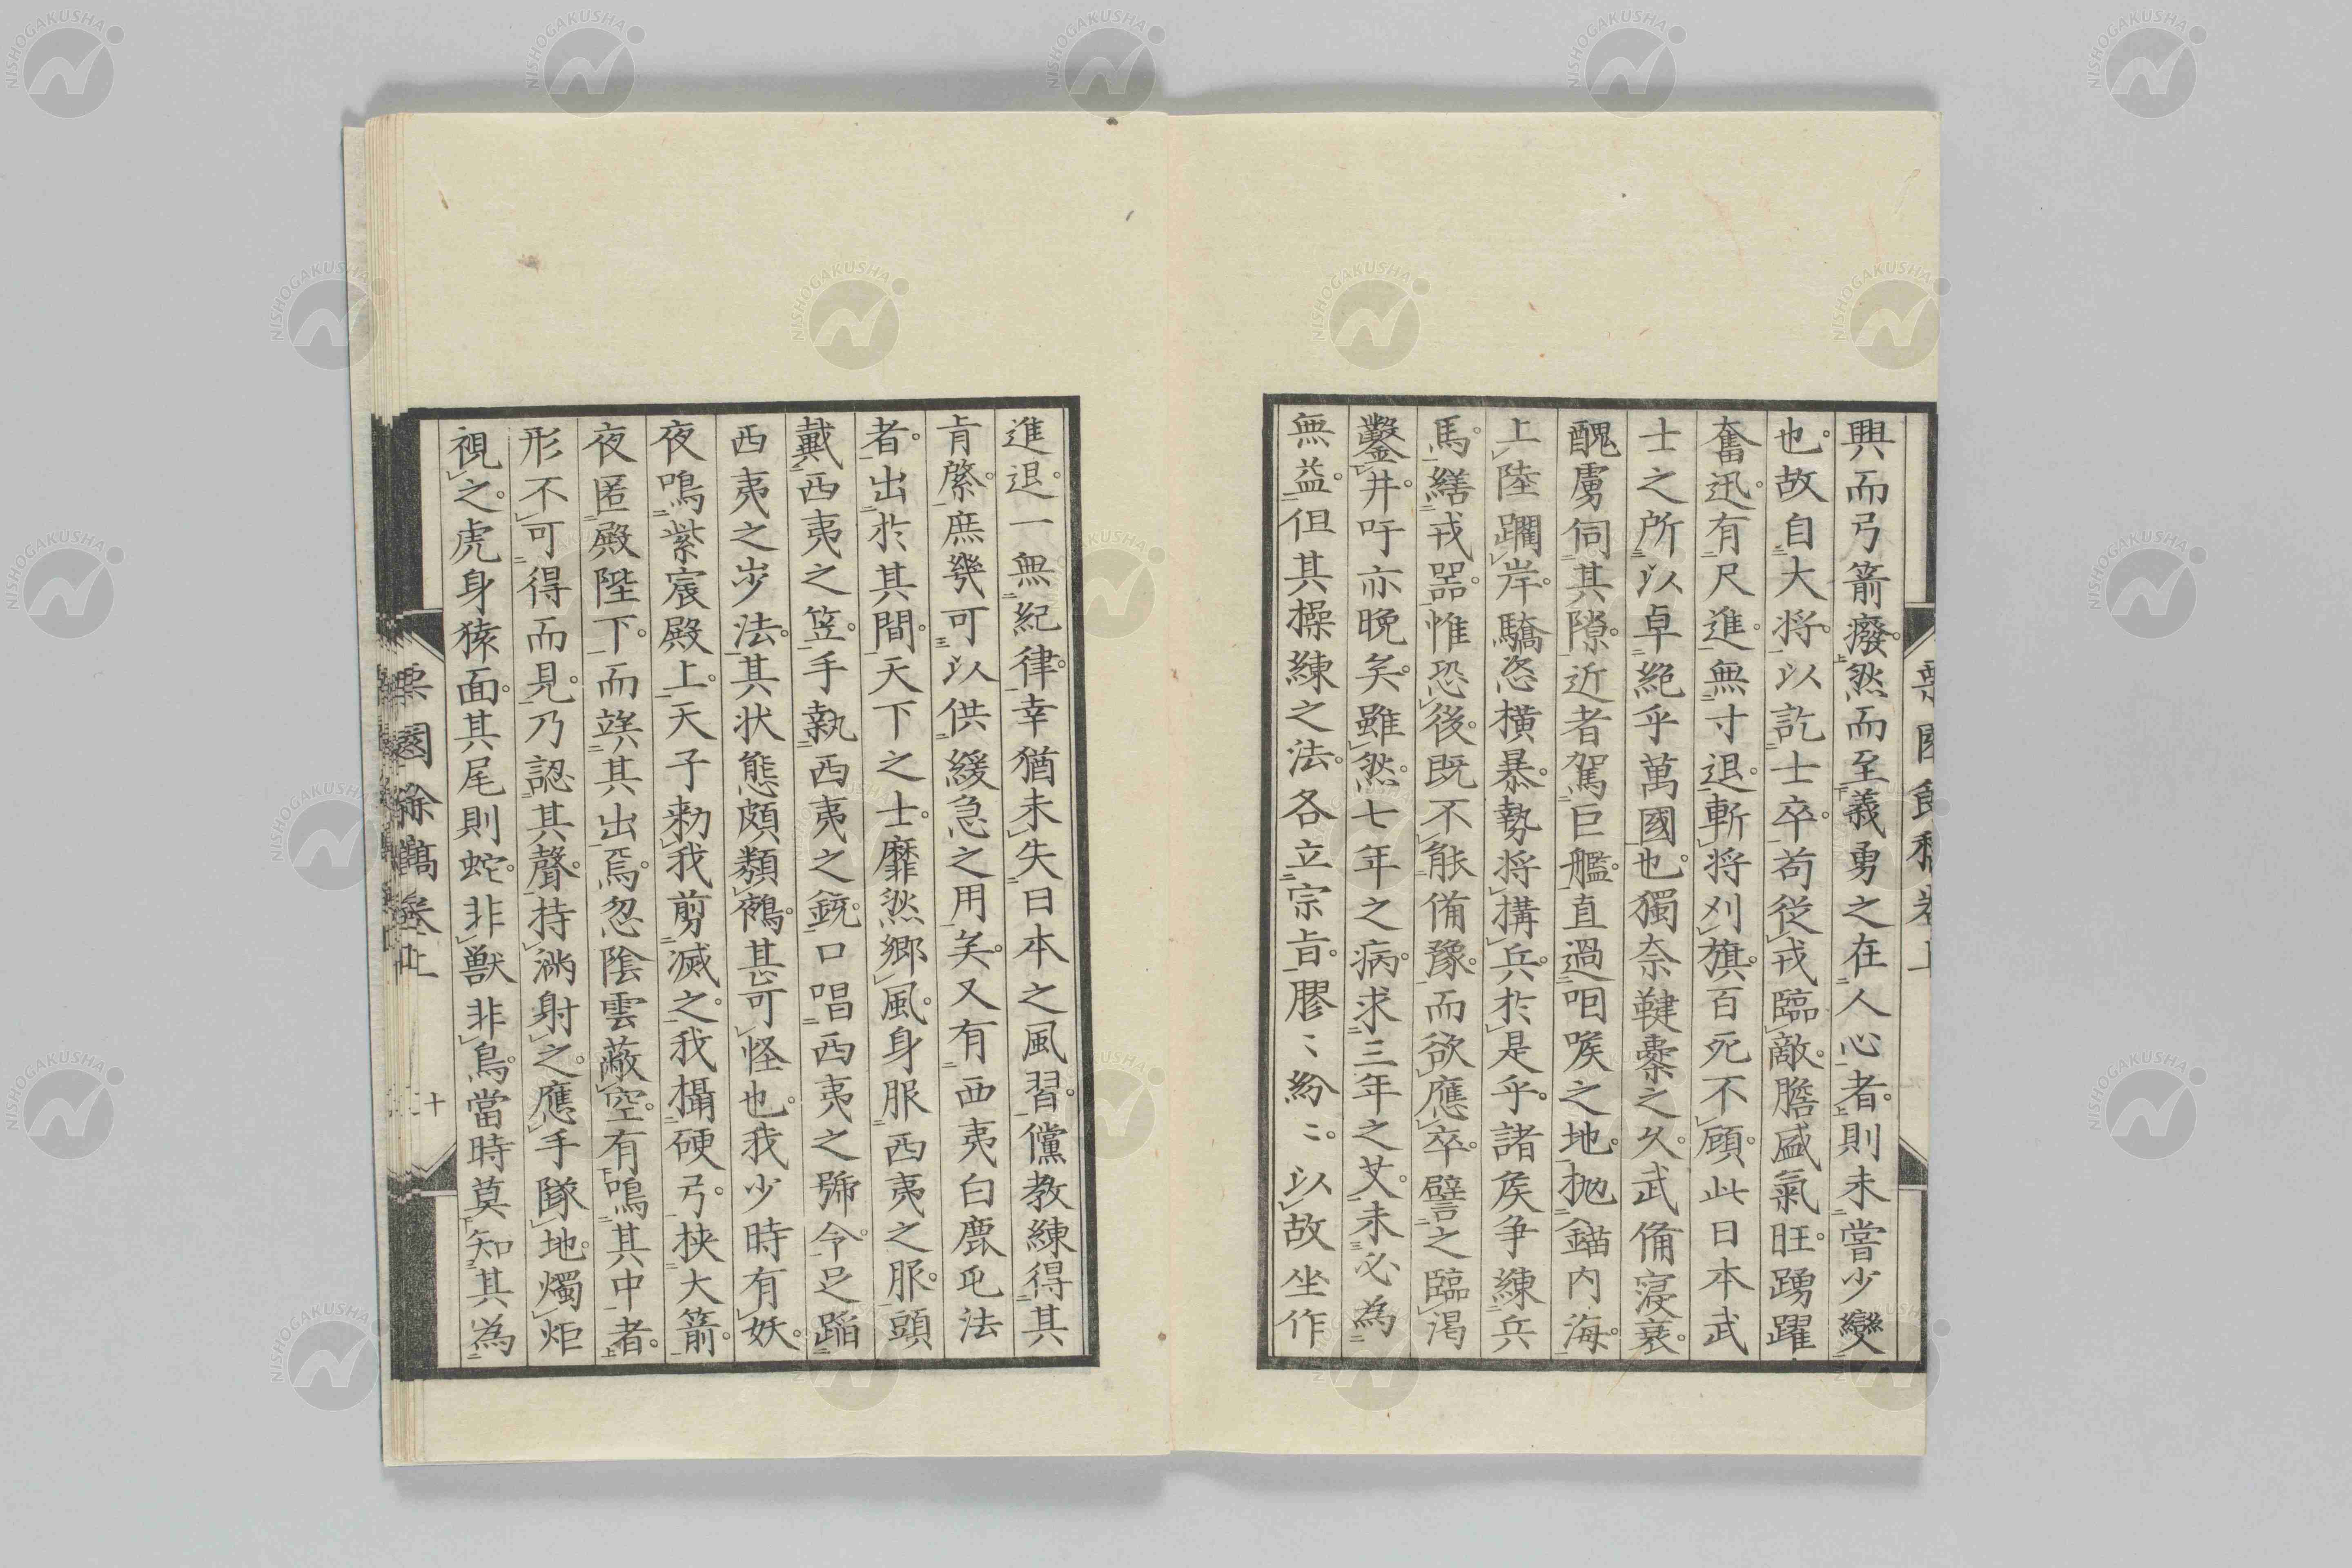 興而弓箭癈。然而至義勇之在人心者。則未嘗少變
也。故自大将。以訖士卒。苟從戎臨敵。膽盛氣旺。踴躍
奮迅。有尺進。無寸退。斬将刈旗。百死不顧。此日本武
士之所以卓絶乎萬國也。獨奈鞬櫜之久。武備寖衰。
醜虜伺其隙。近者駕巨艦。直過咽喉之地。抛錨内海。
上陸躙岸。驕恣横暴。勢将搆兵。於是乎。諸矦争練兵
馬。繕戎器。惟恐後。既不能備豫。而欲應卒。譬之臨渇
鑿井。吁亦晩矣。雖然七年之病。求三年之艾。未必為
無益。但其操練之法。各立宗旨。膠〻紛〻。以故坐作
進退。一無紀律。幸猶未失日本之風習。儻教練得其
肯綮。庶幾可以供緩急之用矣。又有西夷白鹿屯法
者。出於其間。天下之士。靡然郷風。身服西夷之服。頭
戴西夷之笠。手執西夷之銃。口唱西夷之號令。足蹈
西夷之步法。其状態頗類鵺。甚可怪也。我少時有妖。
夜鳴紫宸殿上。天子勑我剪滅之。我攝硬弓。挟大箭。
夜匿殿陛下。而竢其出焉。忽陰雲蔽空。有鳴其中者。
形不可得而見。乃認其聲。持滿射之。應手隊地。燭炬
視之。虎身猿面。其尾則蛇。非獸非鳥。當時莫知其為
栗園餘稿巻上
栗園餘稿巻上
十